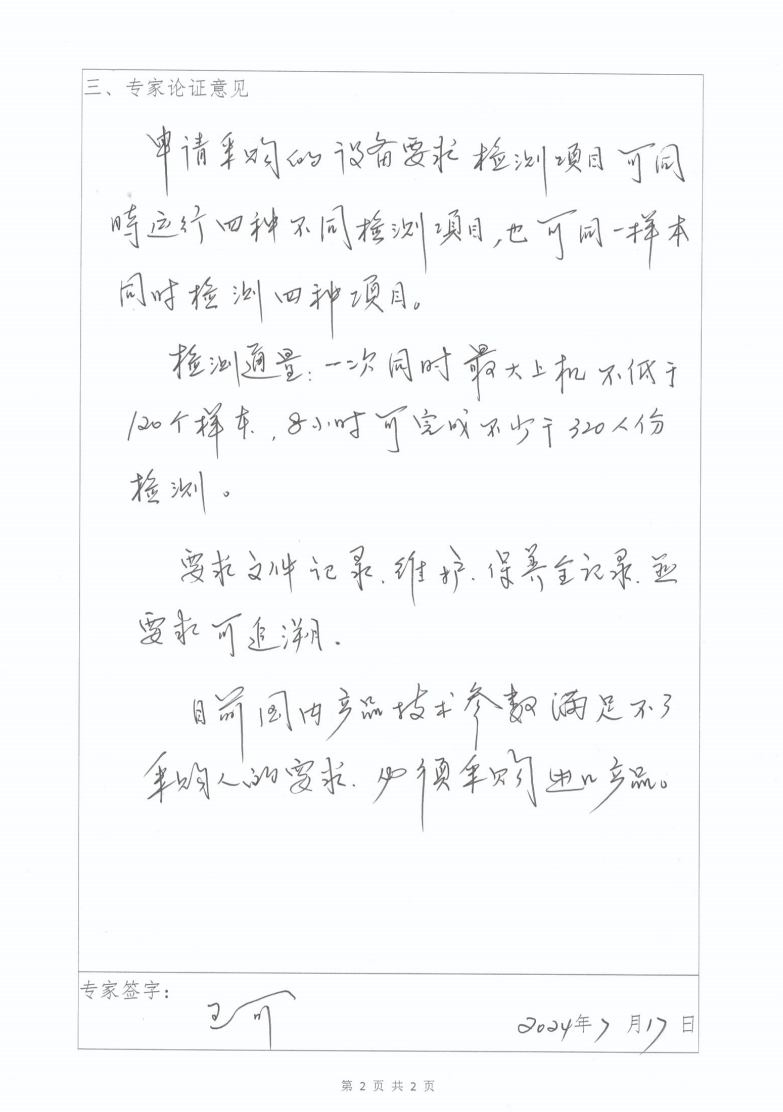 三、专家论证意见
申请采购的设备要求检测项目可同
时运行四种不同检测项目,也可同一样本
同时检测四种项目。
检测通量:一次同时最大上机不低于
120个样本,8小时可完成不少于320人份
检测。
要求文件记录、维护、保养全记录、并
要求可追溯.
目前国内产品技术参数满足不了
采购人的要求.必须采购进口产品。
专家签字:
王可
2024年7月17日
第 2 页 共 2 页